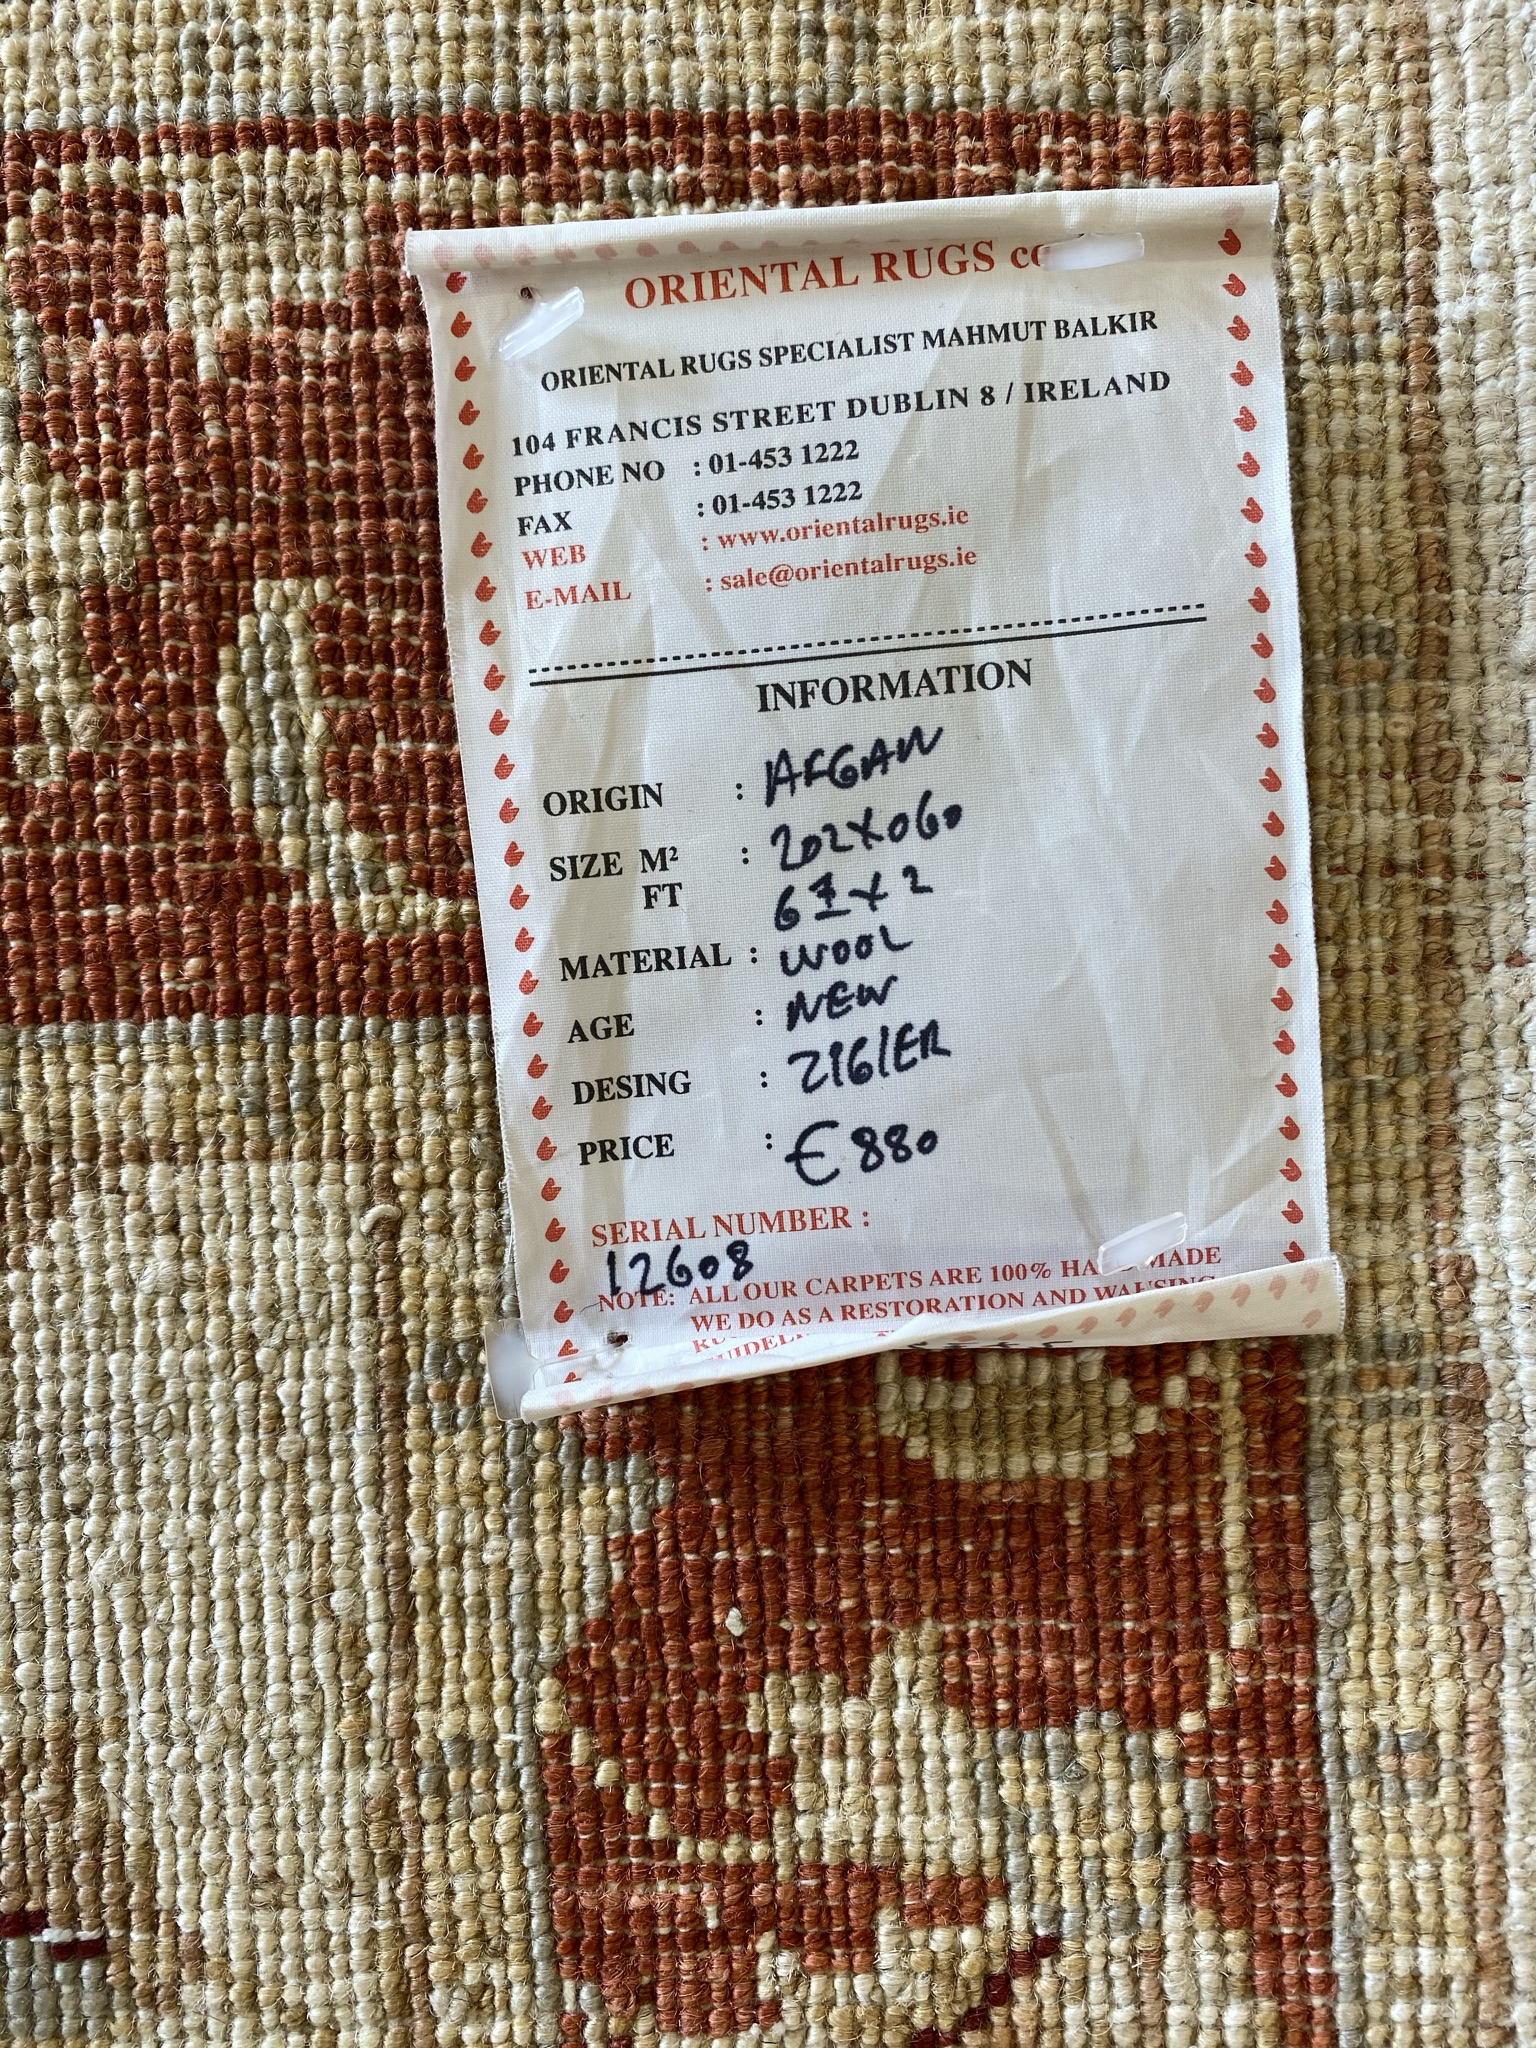 ORIENTAL RUGS
ORIENTAL RUGS SPECIALIST MAHMUT BALKIR
104 FRANCIS STREET DUBLIN 8 / IRELAND
PHONE NO : 01-453 1222
FAX : 01-453 1222
WEB : www.orientalrugs.ie
E-MAIL : sale@orientalrugs.ie
INFORMATION
ORIGIN : AFGAN
SIZE M² : 202X060
FT 67 X 2
MATERIAL : WOOL
AGE : NEW
DESING : ZIGIER
PRICE : €880
SERIAL NUMBER :
12608
NOTE: ALL OUR CARPETS ARE 100% MADE
WE DO AS A RESTORATION AND